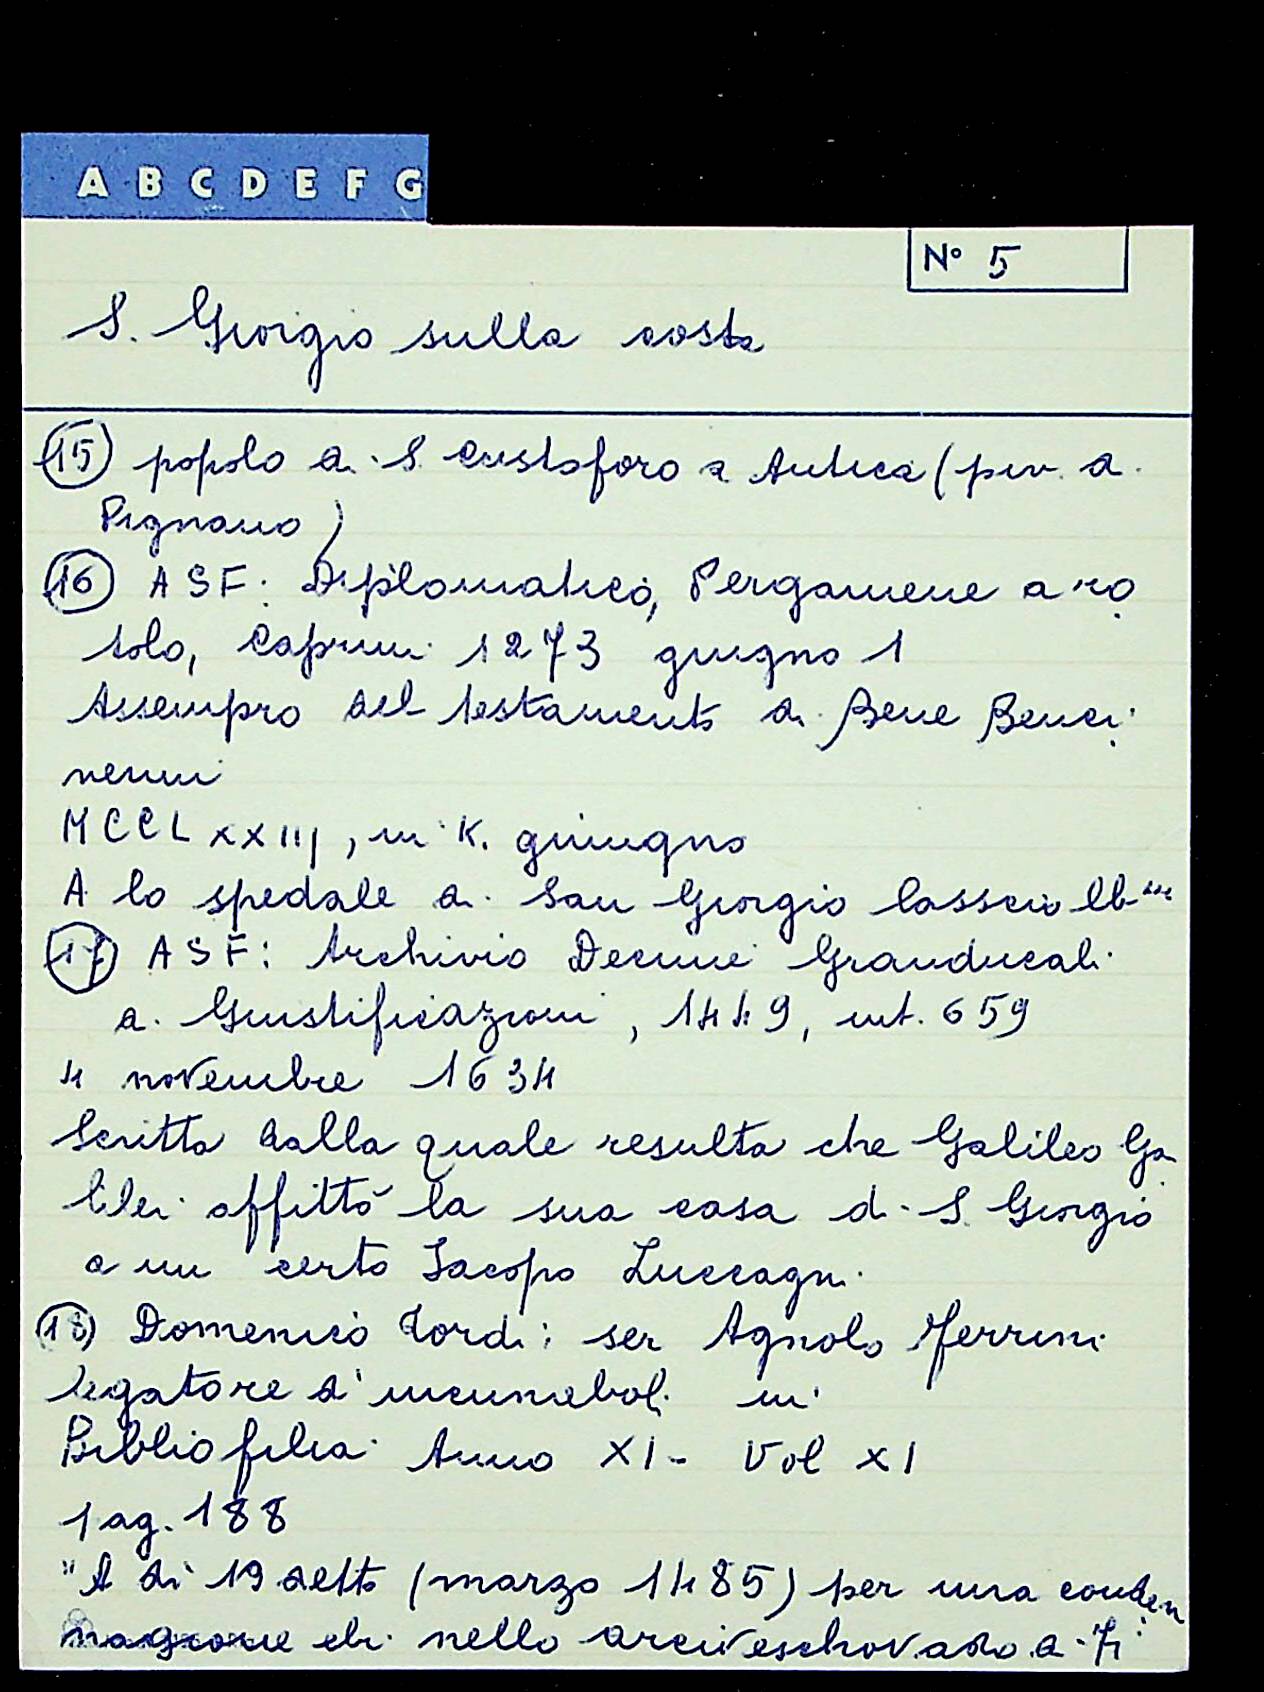 A B C D E F G
N° 5
S. Giorgio sulla costa
(15) popolo di S. Cristoforo a Antica (piv. di
Pignano)
(16) ASF: Diplomatico, Pergamene a ro
tolo, Caprini 1273 giugno 1
Assempro del testamento di Bene Benci
venni
MCCLXXIIJ, in K. giungno
A lo spedale di San Giorgio lasscio lb
(17) ASF: Archivio Decime Granducali
di Giustificazioni, 1449, int. 659
4 novembre 1634
Scritta dalla quale resulta che Galileo Ga
lilei affittò la sua casa di S. Giorgio
a un certo Iacopo Luccagni
(18) Domenico Tordi: ser Agnolo Ferrini
legatore d'incunaboli in
Bibliofilia Anno XI - Vol XI
pag. 188
"A dì 19 detto (marzo 1485) per una conden
nagione ebi nello arciveschovado di Fi